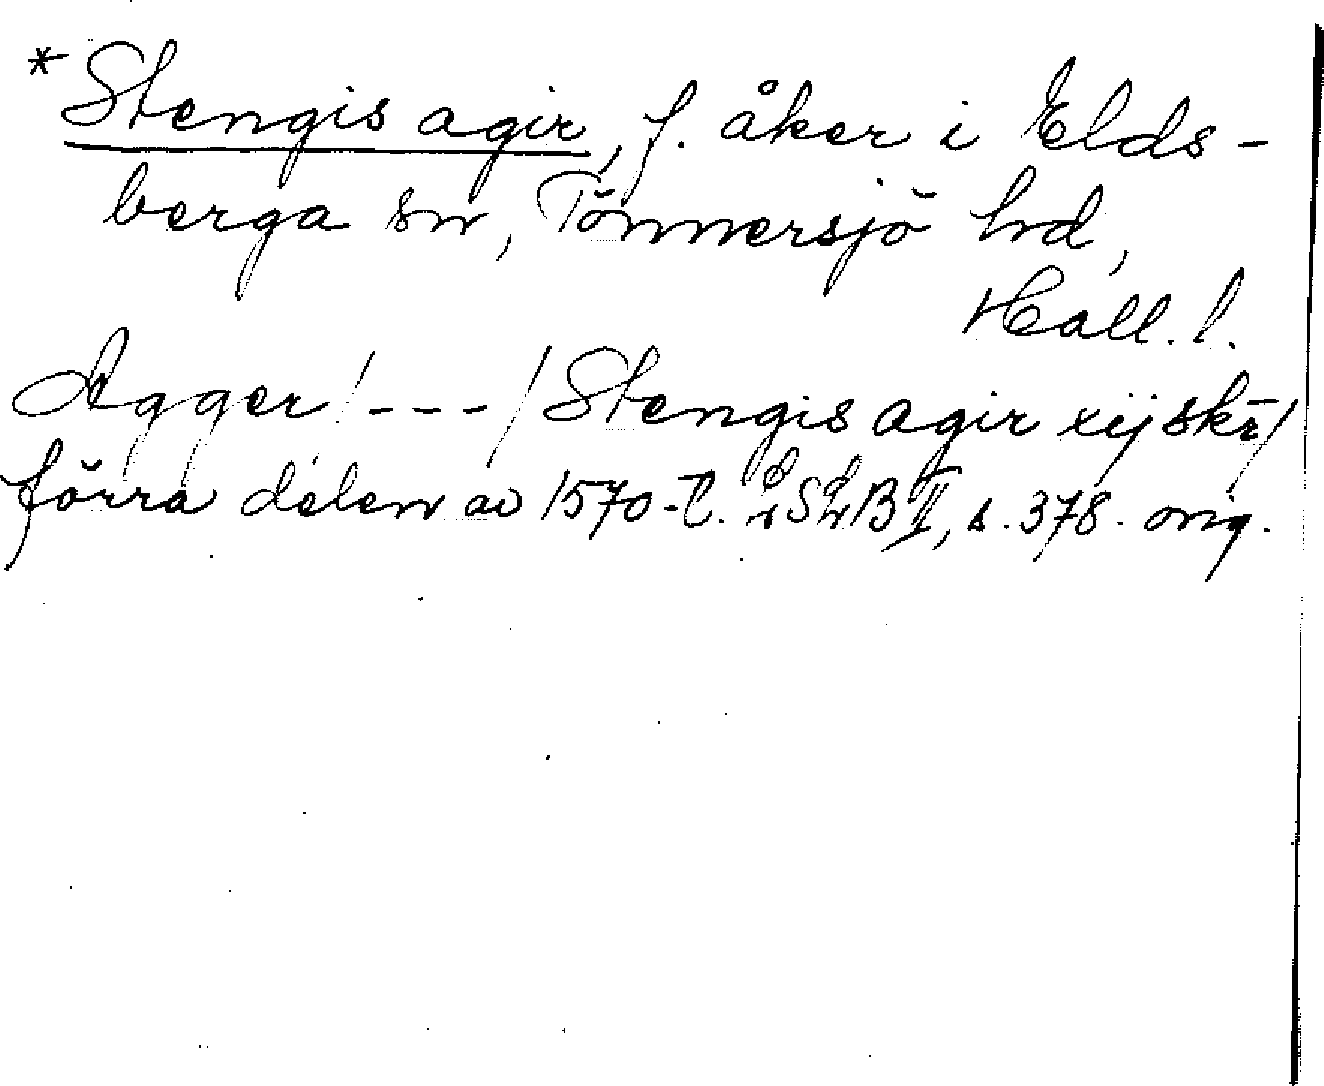 *Stengis agir, f. åker i Elds-
berga sn, Tönnersjö hd,
Hall. l.
Agger /---/ Stengis agir xij skr̄/
förra delen av 1570-t. LSLB II, s. 378. orig.